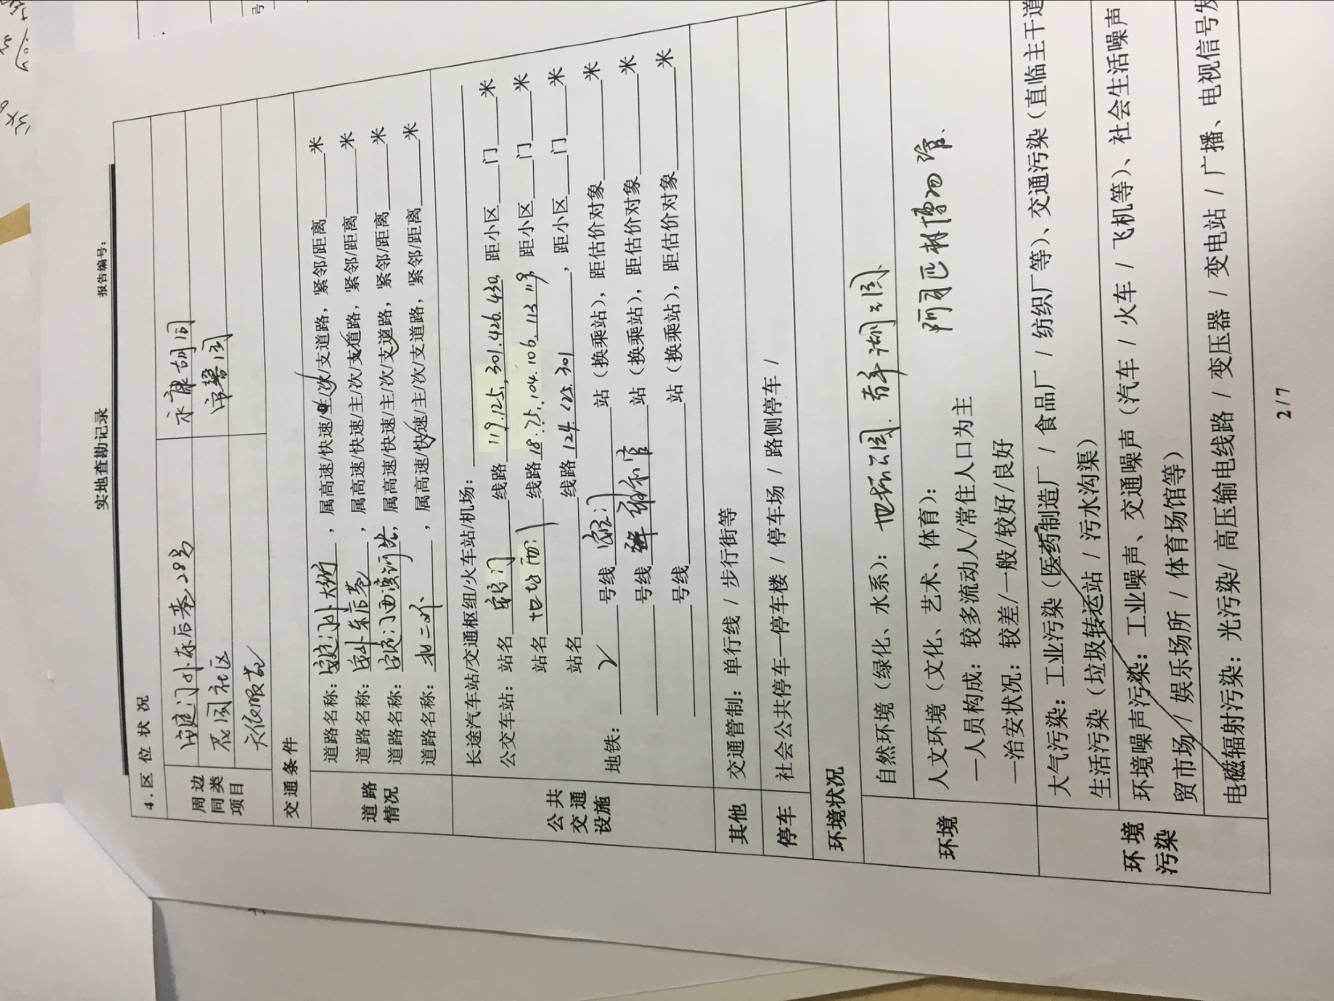 实地查勘记录
报告编号:
4.区位状况
周边同类项目
安定门外东后巷28号
永康胡同
社区
交通条件
道路情况
道路名称:安定门外大街,属高速/快速/主/次/支道路,紧邻/距离___米
道路名称:,属高速/快速/主/次/支道路,紧邻/距离___米
道路名称:,属高速/快速/主/次/支道路,紧邻/距离___米
道路名称:,属高速/快速/主/次/支道路,紧邻/距离___米
公共交通设施
长途汽车站/交通枢纽/火车站/机场:
公交车站:站名 线路 119.125, 301.426.430, 距小区___门___米
站名 线路 18.75.104.106.113 119 距小区___门___米
站名 线路 124. 125. 301, 距小区___门___米
地铁:2号线 安定门 站(换乘站),距估价对象___米
号线 雍和宫 站(换乘站),距估价对象___米
号线 站(换乘站),距估价对象___米
其他
交通管制:单行线 / 步行街等
停车
社会公共停车—停车楼 / 停车场 / 路侧停车 /
环境状况
环境
自然环境(绿化、水系):地坛公园. 青年湖公园.
人文环境(文化、艺术、体育):
一人员构成:较多流动人/常住人口为主
一治安状况:较差/一般/较好/良好
环境污染
大气污染:工业污染(医药制造厂 / 食品厂 / 纺织厂等)、交通污染(直临主干道
生活污染(垃圾转运站 / 污水沟渠)
环境噪声污染:工业噪声、交通噪声(汽车 / 火车 / 飞机等)、社会生活噪声
贸市场 / 娱乐场所 / 体育场馆等)
电磁辐射污染:光污染/ 高压输电线路 / 变压器 / 变电站 / 广播、电视信号发
2/7